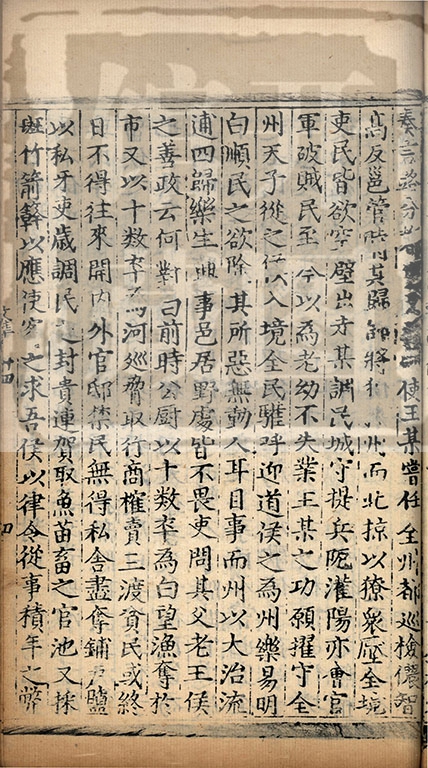 奏言 使王某嘗任全州都巡檢儂智
高反邕管 其歸 將 州而北掠以獠衆壓全境
吏民皆欲空壁出走某調民城守提兵阨灌陽亦會官
軍破賊民至今以為老幼不失業王某之功願擢守全
州天子從之侯以入境全民驩呼迎道侯之為州樂易明
白順民之欲除其所惡無動人耳目事而州以大治流
逋四歸樂生興事邑居野處皆不畏吏問其父老王侯
之善政云何對曰前時公廚以十數卒為白望漁奪於
市又以十數卒 河巡脅取行商榷賣三渡貧民或終
日不得往來開內外官邸禁民無得私舍盡奪鋪戶鹽
以私牙吏歲調民 封貴連賀取魚苗畜之官池又採
斑竹箭簳以應使 之求吾侯以律令從事積年之弊
十四